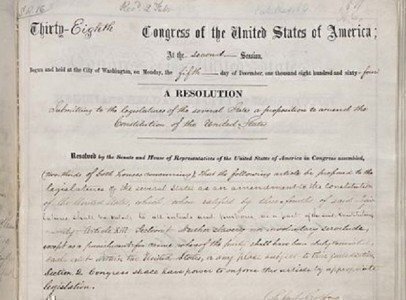 Thirty-Eighth Congress of the United States of America;
At the second Session,
Begun and held at the City of Washington, on Monday, the fifth day of December, one thousand eight hundred and sixty-four
A RESOLUTION
Submitting to the legislatures of the several States a proposition to amend the
Constitution of the United States.
Resolved by the Senate and House of Representatives of the United States of America in Congress assembled,
(two thirds of both houses concurring), That the following article be proposed to the
legislatures of the several States as an amendment to the Constitution
of the United States, which, when ratified by three fourths of said
shall be valid, to all intents and purposes, as a part of the said Constitution
Article XIII. Section 1. Neither slavery nor involuntary servitude,
except as a punishment for crime whereof the party shall have been duly convicted,
shall exist within the United States, or any place subject to their jurisdiction.
Section 2. Congress shall have power to enforce this article by appropriate
legislation.